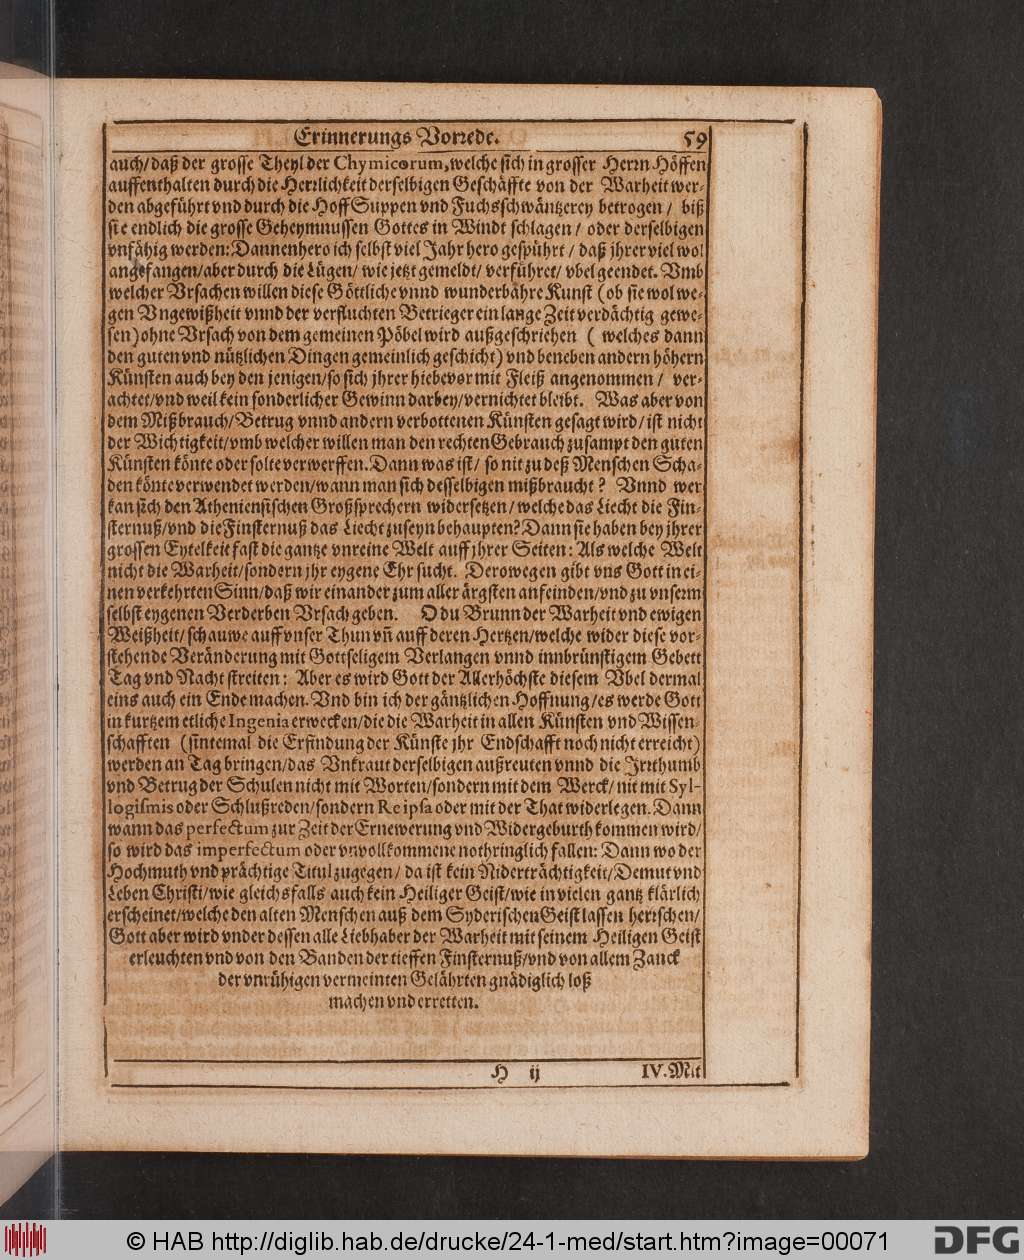 Erinnerungs Vorrede. 59
auch/ daß der grosse Theyl der Chymicorum, welche sich in grosser Herrn Höffen
auffenthalten durch die Herrlichkeit derselbigen Geschäffte von der Warheit wer-
den abgeführt vnd durch die Hoff Suppen vnd Fuchsschwäntzerey betrogen / biß
sie endlich die grosse Geheymnussen Gottes in Windt schlagen / oder derselbigen
vnfähig werden: Dannenhero ich selbst viel Jahr hero gespührt / daß jhrer viel wol
angefangen/ aber durch die Lügen/ wie jetzt gemeldt/ verführet/ vbel geendet. Vmb
welcher Vrsachen willen diese Göttliche vnnd wunderbähre Kunst (ob sie wol we-
gen Vngewißheit vnnd der verfluchten Betrieger ein lange Zeit verdächtig gewe-
sen) ohne Vrsach von dem gemeinen Pöbel wird außgeschriehen ( welches dann
den guten vnd nützlichen Dingen gemeinlich geschicht) vnd beneben andern höhern
Künsten auch bey den jenigen/ so sich jhrer hiebevor mit Fleiß angenommen / ver-
achtet/ vnd weil kein sonderlicher Gewinn darbey/ vernichtet bleibt. Was aber von
dem Mißbrauch/ Betrug vnnd andern verbottenen Künsten gesagt wird/ ist nicht
der Wichtigkeit/ vmb welcher willen man den rechten Gebrauch zusampt den guten
Künsten könte oder solte verwerffen. Dann was ist/ so nit zu deß Menschen Scha-
den könte verwendet werden/ wann man sich desselbigen mißbraucht? Vnnd wer
kan sich den Atheniensischen Großsprechern widersetzen/ welche das Liecht die Fin-
sternuß/ vnd die Finsternuß das Liecht zuseyn behaupten? Dann sie haben bey jhrer
grossen Eytelkeit fast die gantze vnreine Welt auff jhrer Seiten: Als welche Welt
nicht die Warheit/ sondern jhr eygene Ehr sucht. Derowegen gibt vns Gott in ei-
nen verkehrten Sinn/ daß wir einander zum aller ärgsten anfeinden/ vnd zu vnserm
selbst eygenen Verderben Vrsach geben. O du Brunn der Warheit vnd ewigen
Weißheit/ schauwe auff vnser Thun vñ auff deren Hertzen/ welche wider diese vor-
stehende Veränderung mit Gottseligem Verlangen vnnd innbrünstigem Gebett
Tag vnd Nacht streiten: Aber es wird Gott der Allerhöchste diesem Vbel dermal
eins auch ein Ende machen. Vnd bin ich der gäntzlichen Hoffnung/ es werde Gott
in kurtzem etliche Ingenia erwecken/ die die Warheit in allen Künsten vnd Wissen-
schafften (sintemal die Erfindung der Künste jhr Endschafft noch nicht erreicht)
werden an Tag bringen/ das Vnkraut derselbigen außreuten vnnd die Irrthumb
vnd Betrug der Schulen nicht mit Worten/ sondern mit dem Werck/ nit mit Syl-
logismis oder Schlußreden/ sondern Re ipsa oder mit der That widerlegen. Dann
wann das perfectum zur Zeit der Ernewerung vnd Widergeburth kommen wird/
so wird das imperfectum oder vnvollkommene nothringlich fallen: Dann wo der
Hochmuth vnd prächtige Titul zugegen / da ist kein Niderträchtigkeit/ Demut vnd
Leben Christi/ wie gleichsfalls auch kein Heiliger Geist/ wie in vielen gantz klärlich
erscheinet/ welche den alten Menschen auß dem Syderischen Geist lassen herrschen/
Gott aber wird vnder dessen alle Liebhaber der Warheit mit seinem Heiligen Geist
erleuchten vnd von den Banden der tieffen Finsternuß/ vnd von allem Zanck
der vnrühigen vermeinten Gelährten gnädiglich loß
machen vnd erretten.
H ij IV. Mit
© HAB http://diglib.hab.de/drucke/24-1-med/start.htm?image=00071
DFG